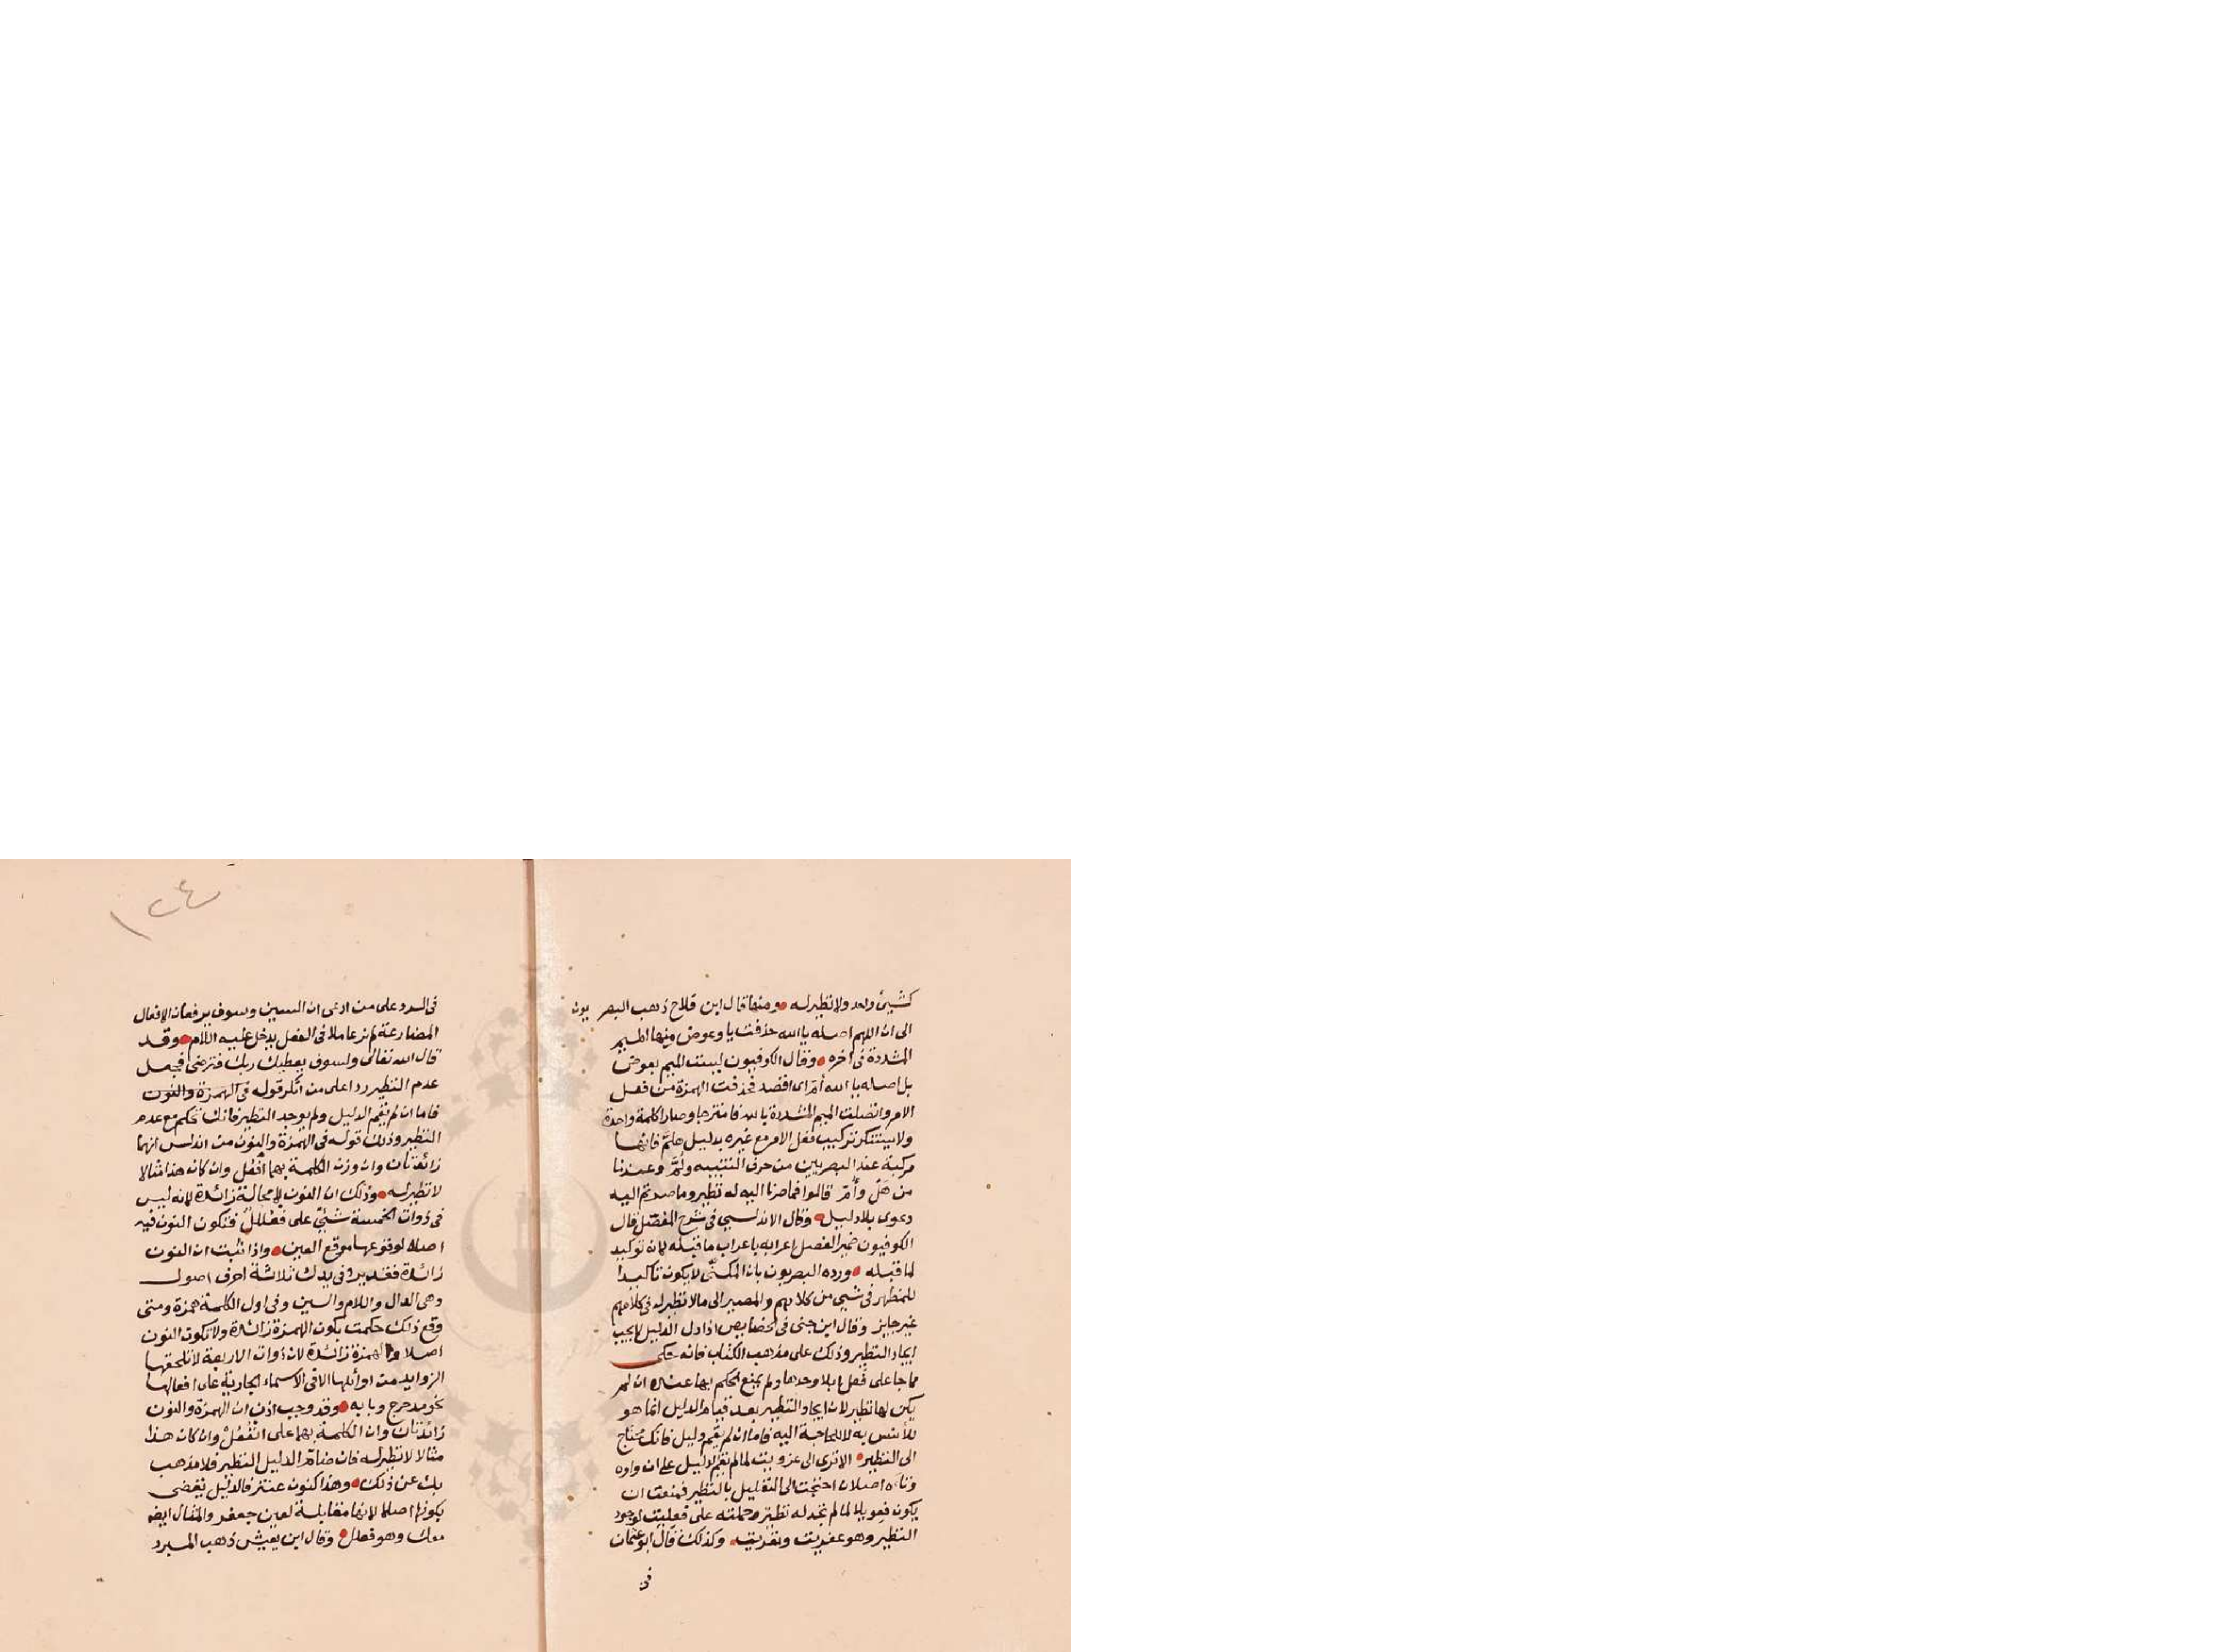 كشيئ واحد ولا نظير له ومنها قال ابن فلاح ذهب البصريون
الى ان اللهم اصله يا الله حذفت يا وعوض منها الميم
المشددة فى آخره وقال الكوفيون ليست الميم بعوض
بل اصله يا الله أمّ اى اقصد فحذفت الهمزة من فعل
الامر واتصلت الميم المشددة بالله فامتزجا وصارا كلمة واحدة
ولا يستنكر تركيب فعل الامر مع غيره بدليل هلمّ فانها
مركبة عند البصريين من حرف التنبيه ولُمّ وعندنا
من هل وأمّ قالوا فما صرنا اليه له نظير وما صرتم اليه
دعوى بلا دليل وقال الاندلسي فى شرح المفصل قال
الكوفيون ضمير الفصل اعرابه باعراب ما قبله لانه توكيد
لما قبله ورده البصريون بان المكنّى لا يكون تاكيدا
للمظهر فى شيئ من كلامهم والمصير الى ما لا نظير له فى كلامهم
غير جايز وقال ابن جنى فى الخصايص اذا دل الدليل لا يجب
ايجاد النظير وذلك على مذهب الكتاب فانه حكى
مما جا على فِعِل إبلا وحدها ولم يمنع الحكم بها عنده ان لم
يكن لها نظير لان ايجاد النظير بعد قيام الدليل انما هو
للأنس به لا للحاجة اليه فاما ان لم يقم دليل فانك محتاج
الى النظير الا ترى الى عزويت لما لم يقم الدليل على ان واوه
وتاءه اصلان احتجت الى التعليل بالنظير فمنعت ان
يكون فعويلا لما لم تجد له نظير وحملته على فعليت لوجود
النظير وهو عفريت ونفريت وكذلك قال ابو عثمان
فى
١٢٤
فى الرد على من ادعى ان السين وسوف يرفعان الافعال
المضارعة لم نر عاملا فى الفعل يدخل عليه اللام وقد
قال الله تعالى ولسوف يعطيك ربك فترضى فجعل
عدم النظير ردا على من انكر قوله فى الهمزة والنون
فاما ان لم يقم الدليل ولم يوجد النظير فانك تحكم مع عدم
النظير وذلك قوله فى الهمزة والنون من اندلس انهما
زائدتان وان وزن الكلمة بهما أنفعُل وان كان هذا مثالا
لا نظير له وذلك ان النون لا محالة زائدة لانه ليس
فى ذوات الخمسة شيئ على فعلُلُل فتكون النون فيه
اصلا لوقوعها موقع العين واذا ثبت ان النون
زائدة فقد برد فى يدك ثلاثة احرف اصول
وهى الدال واللام والسين وفى اول الكلمة همزة ومتى
وقع ذلك حكمت بكون الهمزة زائدة ولا تكون النون
اصلا والهمزة زائدة لان ذوات الاربعة لا تلحقها
الزوايد من اوائلها الا فى الاسماء الجارية على افعالها
نحو مدحرج وبابه وقد وجب اذن ان الهمزة والنون
زائدتان وان الكلمة بهما على انفعُل وان كان هذا
مثالا لا نظير له فان ضامّ الدليل النظير فلا مذهب
بك عن ذلك وهذا كنون عنتر فالدليل يقضى
بكونها اصلا لانها مقابلة لعين جعفر والمثال ايضا
معك وهو فعلل وقال ابن يعيش ذهب المبرد